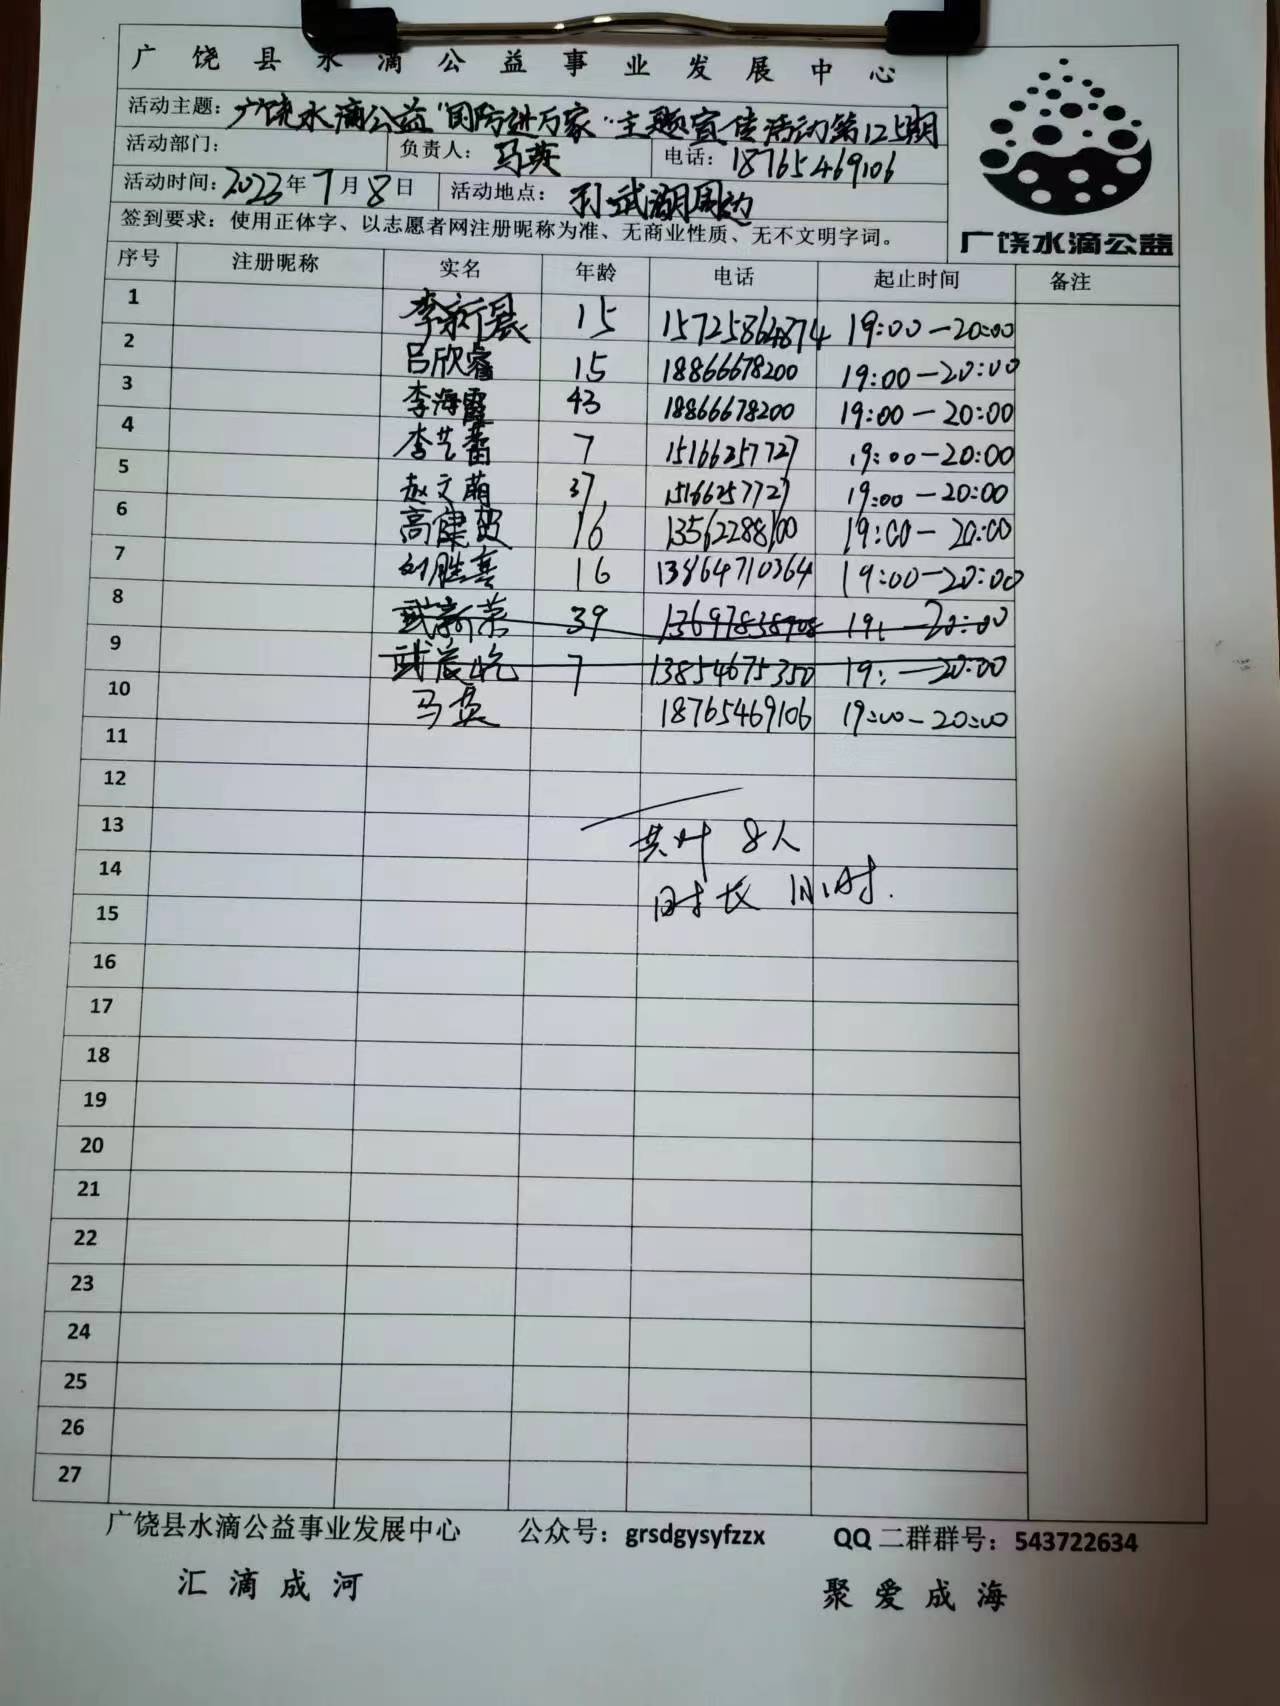 广饶县水滴公益事业发展中心
活动主题：广饶水滴公益"国防进万家"主题宣传活动第125期
活动部门： 负责人：马英 电话：18765469106
活动时间：2023年7月8日 活动地点：孙武湖周边
签到要求：使用正体字、以志愿者网注册昵称为准、无商业性质、无不文明字词。
广饶水滴公益
序号 注册昵称 实名 年龄 电话 起止时间 备注
1 李新晨 15 15725864874 19:00—20:00
2 吕欣睿 15 18866678200 19:00—20:00
3 李海霞 43 18866678200 19:00—20:00
4 李艺蕾 7 15166257727 19:00—20:00
5 赵文萌 37 15166257727 19:00—20:00
6 高健 16 13562288100 19:00—20:00
7 刘胜 16 13864710364 19:00—20:00
8 武新荣 39 13697858908 19: —20:00
9 武 7 13854675350 19: —20:00
10 马英 18765469106 19:00—20:00
11
12
13
共计 8人
14
时长 1小时.
15
16
17
18
19
20
21
22
23
24
25
26
27
广饶县水滴公益事业发展中心 公众号：grsdgysyfzzx QQ二群群号：543722634
汇滴成河 聚爱成海